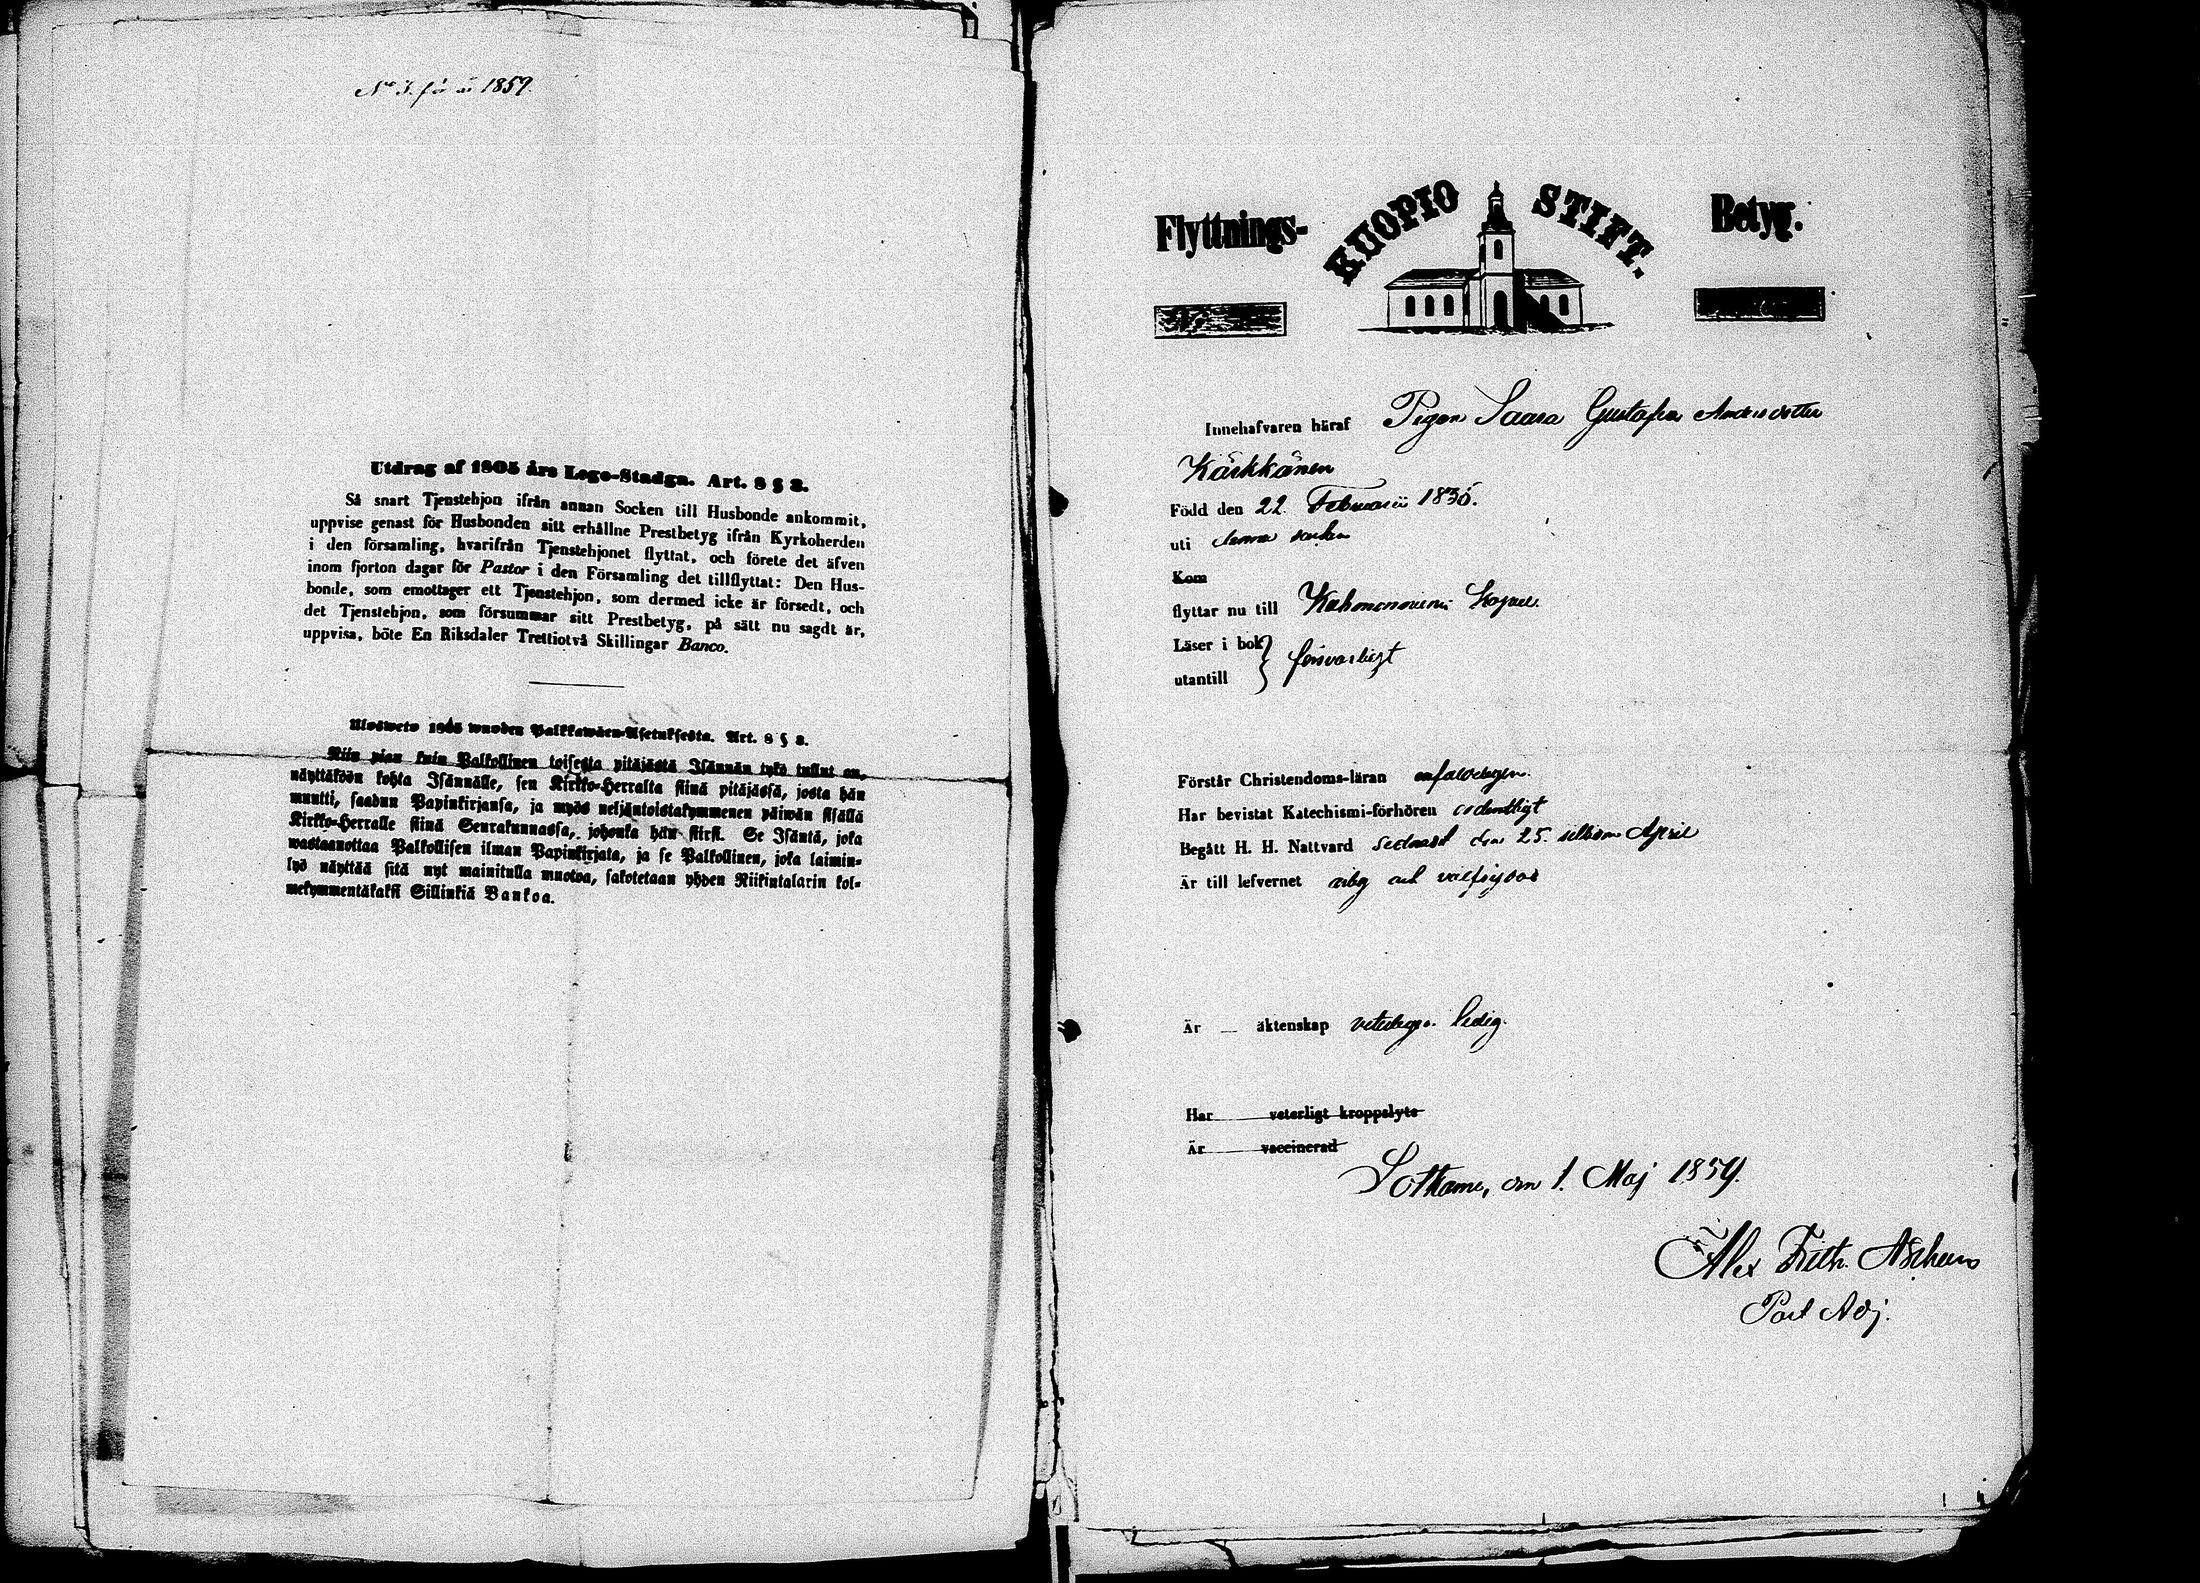 No 3. för år 1859.
Utdrag af 1805 års Lego-Stadga. Art. 8 § 2.
Så snart Tjenstehjon ifrån annan Socken till Husbonde ankommit,
uppvise genast för Husbonden sitt erhållne Prestbetyg ifrån Kyrkoherden
i den församling, hvarifrån Tjenstehjonet flyttat, och förete det äfven
inom fjorton dagar för Pastor i den Församling det tillflyttat: Den Hus-
bonde, som emottager ett Tjenstehjon, som dermed icke är försedt, och
det Tjenstehjon, som försummar sitt Prestbetyg, på sätt nu sagdt är,
uppvisa, böte En Riksdaler Trettiotvå Skillingar Banco.
Uloswето 1805 wuoden Palkkawäen-Asetuksesta. Art. 8 § 2.
Niin pian kuin Palkollinen toisesta pitäjästä Isännän tykö tullut on,
näyttäköön kohta Isännälle, sen Kirkko-Herralta siinä pitäjässä, josta hän
muutti, saadun Papinkirjansa, ja myös neljäntoistakymmenen päiwän sisällä
Kirkko-Herralle siinä Seurakunnassa, johonka hän siirsi. Se Isäntä, joka
wastaanottaa Palkollisen ilman Papinkirjata, ja se Palkollinen, joka laimin-
lyö näyttää sitä nyt mainitulla muotoa, sakotetaan yhden Riikintalarin kol-
mekymmentäkaksi Sillinkiä Bankoa.
Flyttnings- KUOPIO STIFT. Betyg.
Innehafvaren häraf Pigan Saara Gustafva Andersdotter
Kärkkänen
Född den 22 Februarii 1835.
uti denna socken
Kom
flyttar nu till Kuhmoniemi Kapell.
Läser i bok
utantill } försvarligt
Förstår Christendoms-läran enfaldigen.
Har bevistat Katechismi-förhören ordentligt
Begått H. H. Nattvard sednast den 25. sistl. April
Är till lefvernet ärlig och välfrejdad
Är — äktenskap veterligen ledig.
Har veterligt kroppslyte
Är vaccinerad
Sotkamo, den 1. Maj 1859.
Alex Frith.
Past Adj.